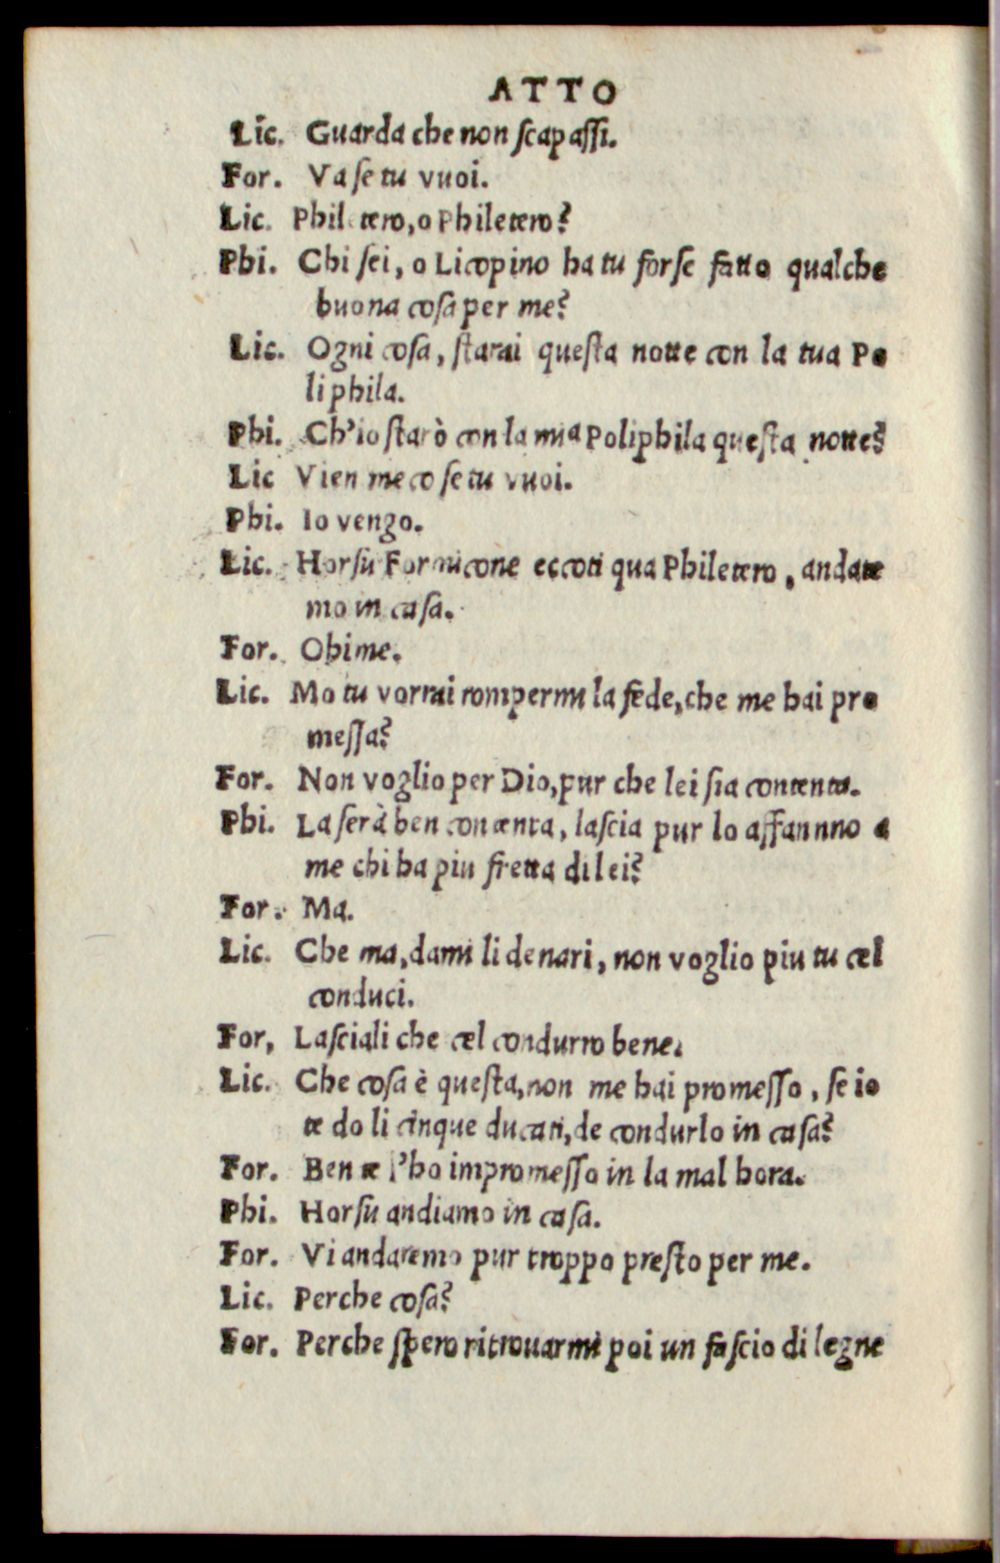 ATTO
Lic. Guarda che non ſcapaſſi.
For. Va ſe tu vuoi.
Lic. Philetero, o Philetero?
Phi. Chi ſei, o Licopino ha tu forſe fatto qualche
buona coſa per me?
Lic. Ogni coſa, ſtarai queſta notte con la tua Po
liphila.
Phi. Ch'io ſtarò con la mia Poliphila queſta notte?
Lic Vien meco ſe tu vuoi.
Phi. Io vengo.
Lic. Horſu Formicone eccoti qua Philetero, andate
mo in caſa.
For. Ohime.
Lic. Mo tu vorrai rompermi la fede, che me hai pro
meſſa?
For. Non voglio per Dio, pur che lei ſia contenta.
Phi. La ſerà ben contenta, laſcia pur lo affannno a
me chi ha piu fretta di lei?
For. Ma.
Lic. Che ma, dami li denari, non voglio piu tu cel
conduci.
For, Laſciali che cel condurro bene.
Lic. Che coſa è queſta, non me hai promeſſo, ſe io
te do li cinque ducati, de condurlo in caſa?
For. Ben te l'ho impromeſſo in la mal hora.
Phi. Horſu andiamo in caſa.
For. Vi andaremo pur troppo preſto per me.
Lic. Perche coſa?
For. Perche ſpero ritrouarmi poi un faſcio di legne